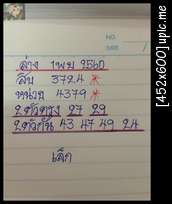 NO.
DATE
ล่าง 1 พย 2560
สิบ 3724 *
หน่วย 4379 *
2 ตัวตรง 27 29
2 ตัวกัน 43 47 49 24
เล็ก
[452x600] upic.me